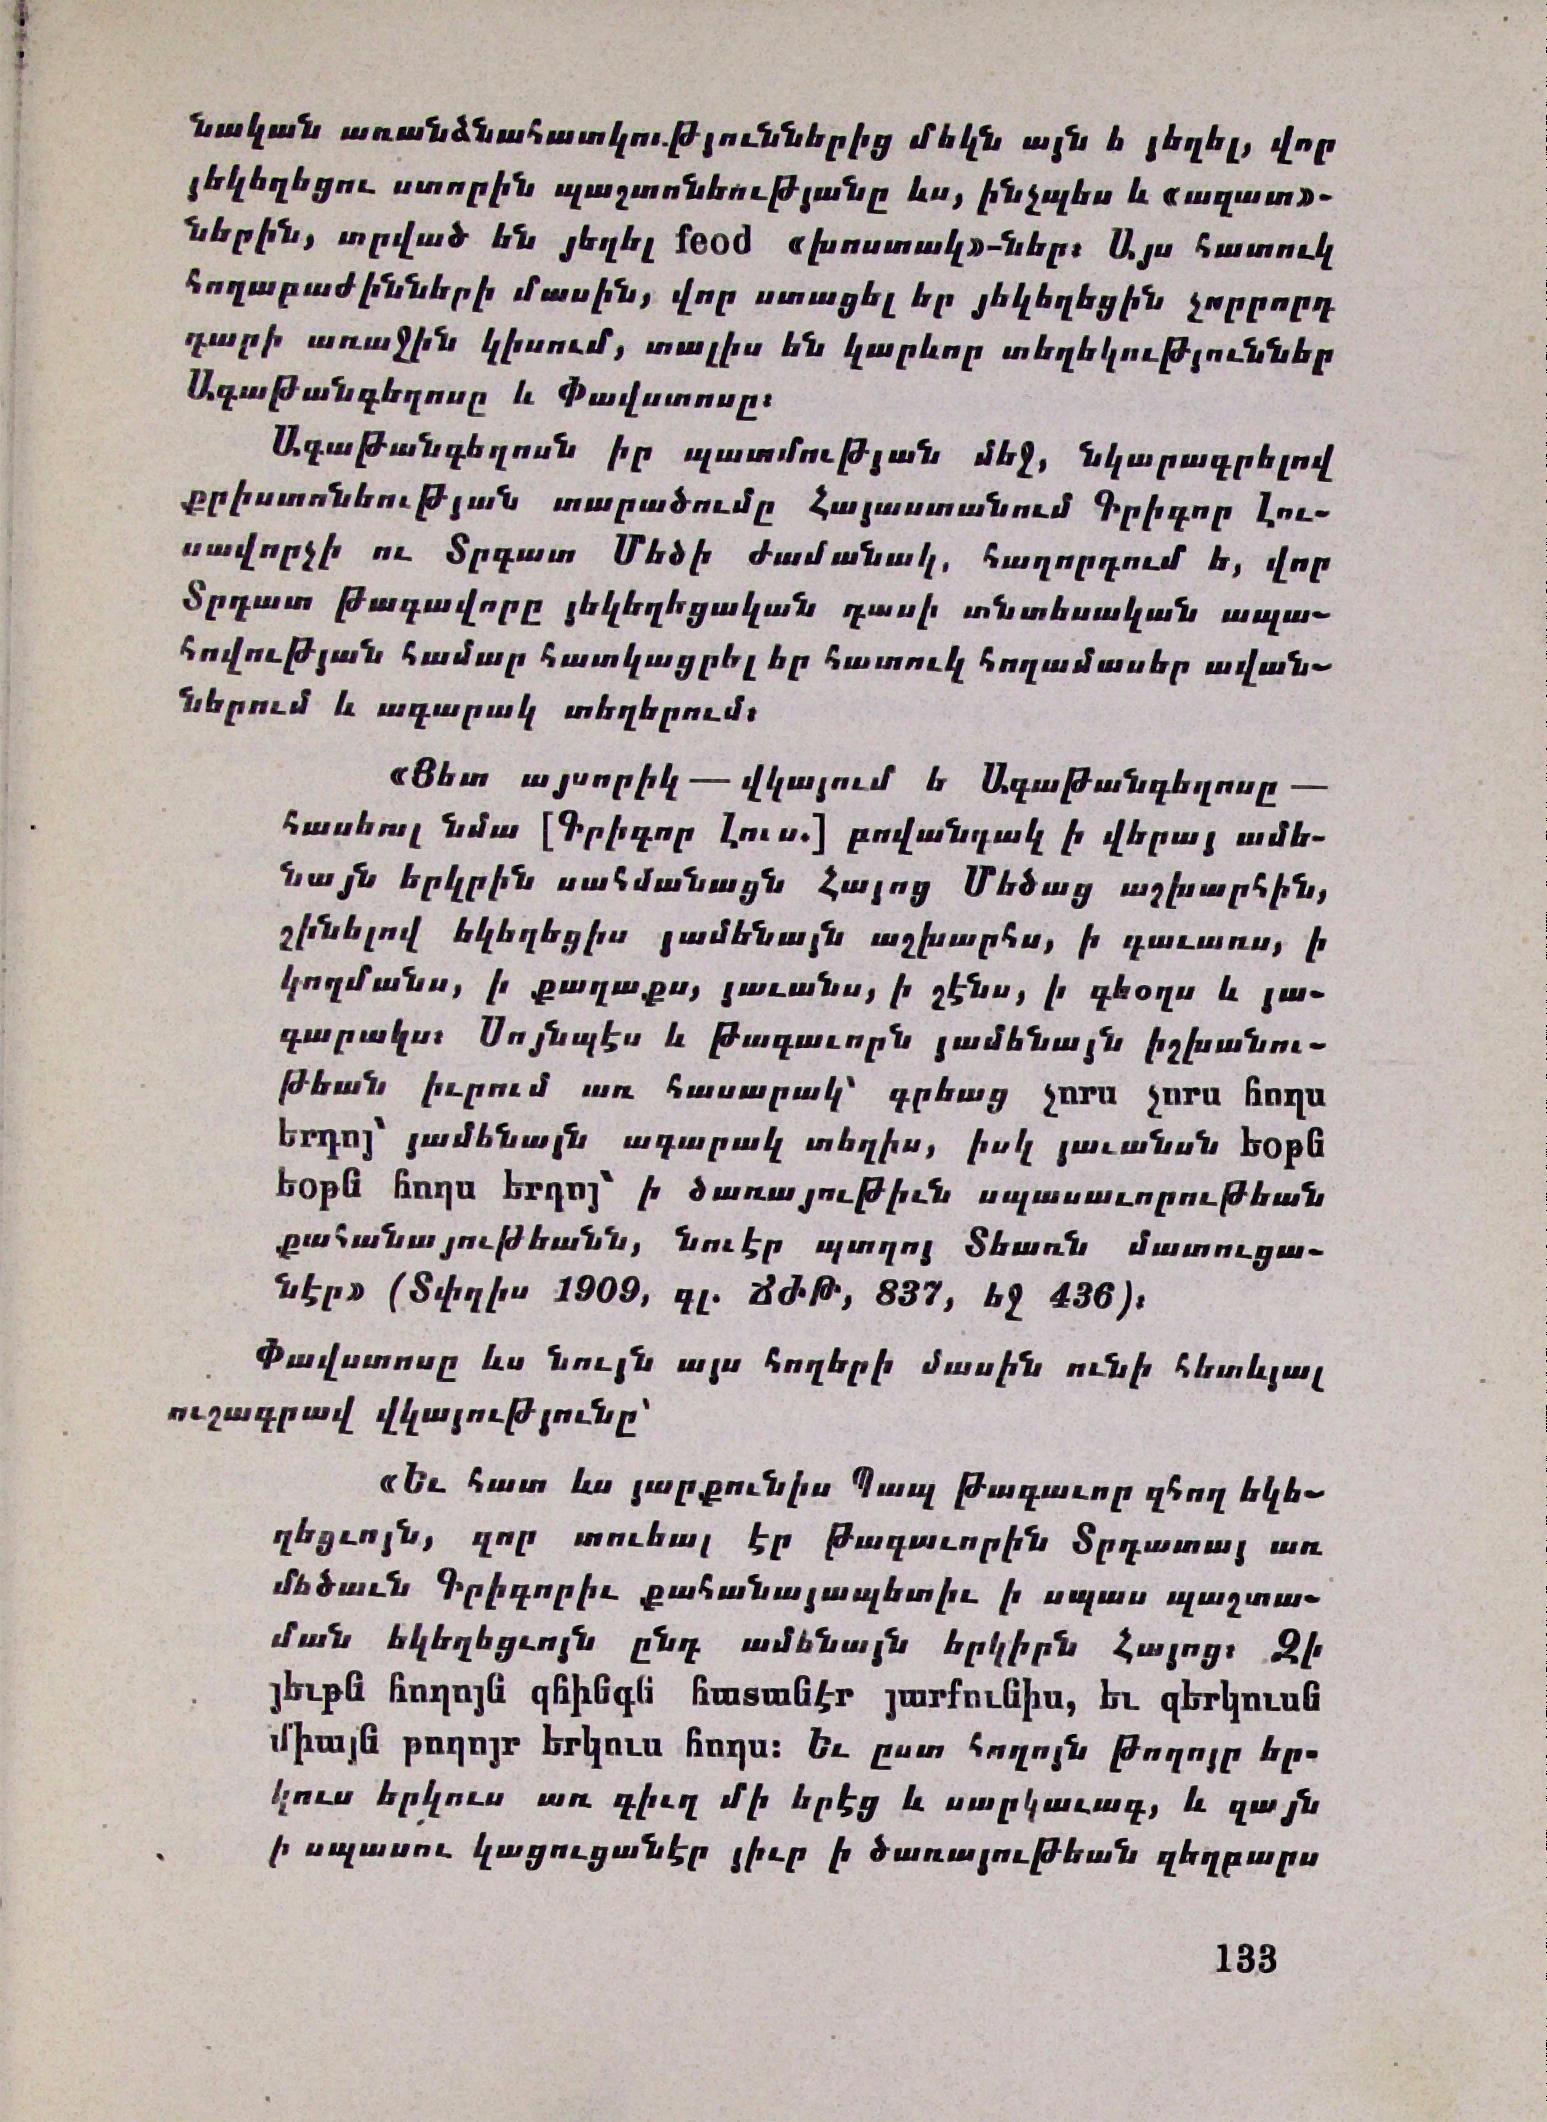 նական առանձնահատկություններից մեկն այն ե յեղել, վոր
յեկեղեցու ստորին պաշտոնեությանը ևս, ինչպես և «ազատ»-
ներին, տրված են յեղել feod «խոստակ»-ներ։ Այս հատուկ
հողաբաժինների մասին, վոր ստացել եր յեկեղեցին չորրորդ
դարի առաջին կիսում, տալիս են կարևոր տեղեկություններ
Ագաթանգեղոսը և Փավստոսը։
Ագաթանգեղոսն իր պատմության մեջ, նկարագրելով
քրիստոնեության տարածումը Հայաստանում Գրիգոր Լու-
սավորչի ու Տրդատ Մեծի ժամանակ, հաղորդում ե, վոր
Տրդատ թագավորը յեկեղեցական դասի տնտեսական ապա-
հովության համար հատկացրել եր հատուկ հողամասեր ավան-
ներում և ագարակ տեղերում։
«Յետ այսորիկ — վկայում ե Ագաթանգեղոսը —
հասեալ նմա [Գրիգոր Լուս.] բովանդակ ի վերայ ամե-
նայն երկրին սահմանացն Հայոց Մեծաց աշխարհին,
շինելով եկեղեցիս յամենայն աշխարհս, ի գաւառս, ի
կողմանս, ի քաղաքս, յաւանս, ի շէնս, ի գեօղս և յա-
գարակս։ Սոյնպէս և թագաւորն յամենայն իշխանու-
թեան իւրում առ հասարակ՝ գրեաց չորս չորս հողս
երդոյ՝ յամենայն ագարակ տեղիս, իսկ յաւանսն եօթն
եօթն հողս երդոյ՝ ի ծառայութիւն սպասաւորութեան
քահանայութեանն, նուէր պտղոյ Տեառն մատուցա-
նէր» (Տփղիս 1909, գլ. ՃԺԹ, 837, եջ 436)։
Փավստոսը ևս նույն այս հողերի մասին ունի հետևյալ
ուշագրավ վկայությունը՝
«Եւ հատ ևս յարքունիս Պապ թագաւոր զհող եկե-
ղեցւոյն, զոր տուեալ էր թագաւորին Տրդատայ առ
մեծաւն Գրիգորիւ քահանայապետիւ ի սպաս պաշտա-
ման եկեղեցւոյն ընդ ամենայն երկիրն Հայոց։ Զի
յեւթն հողոյն զհինգն հատանէր յարքունիս, եւ զերկուսն
միայն թողոյր երկուս հողս։ Եւ ըստ հողոյն թողոյր եր-
կուս երկուս առ գիւղ մի երէց և սարկաւագ, և զայն
ի սպասու կացուցանէր յիւր ի ծառայութեան զեղբարս
133